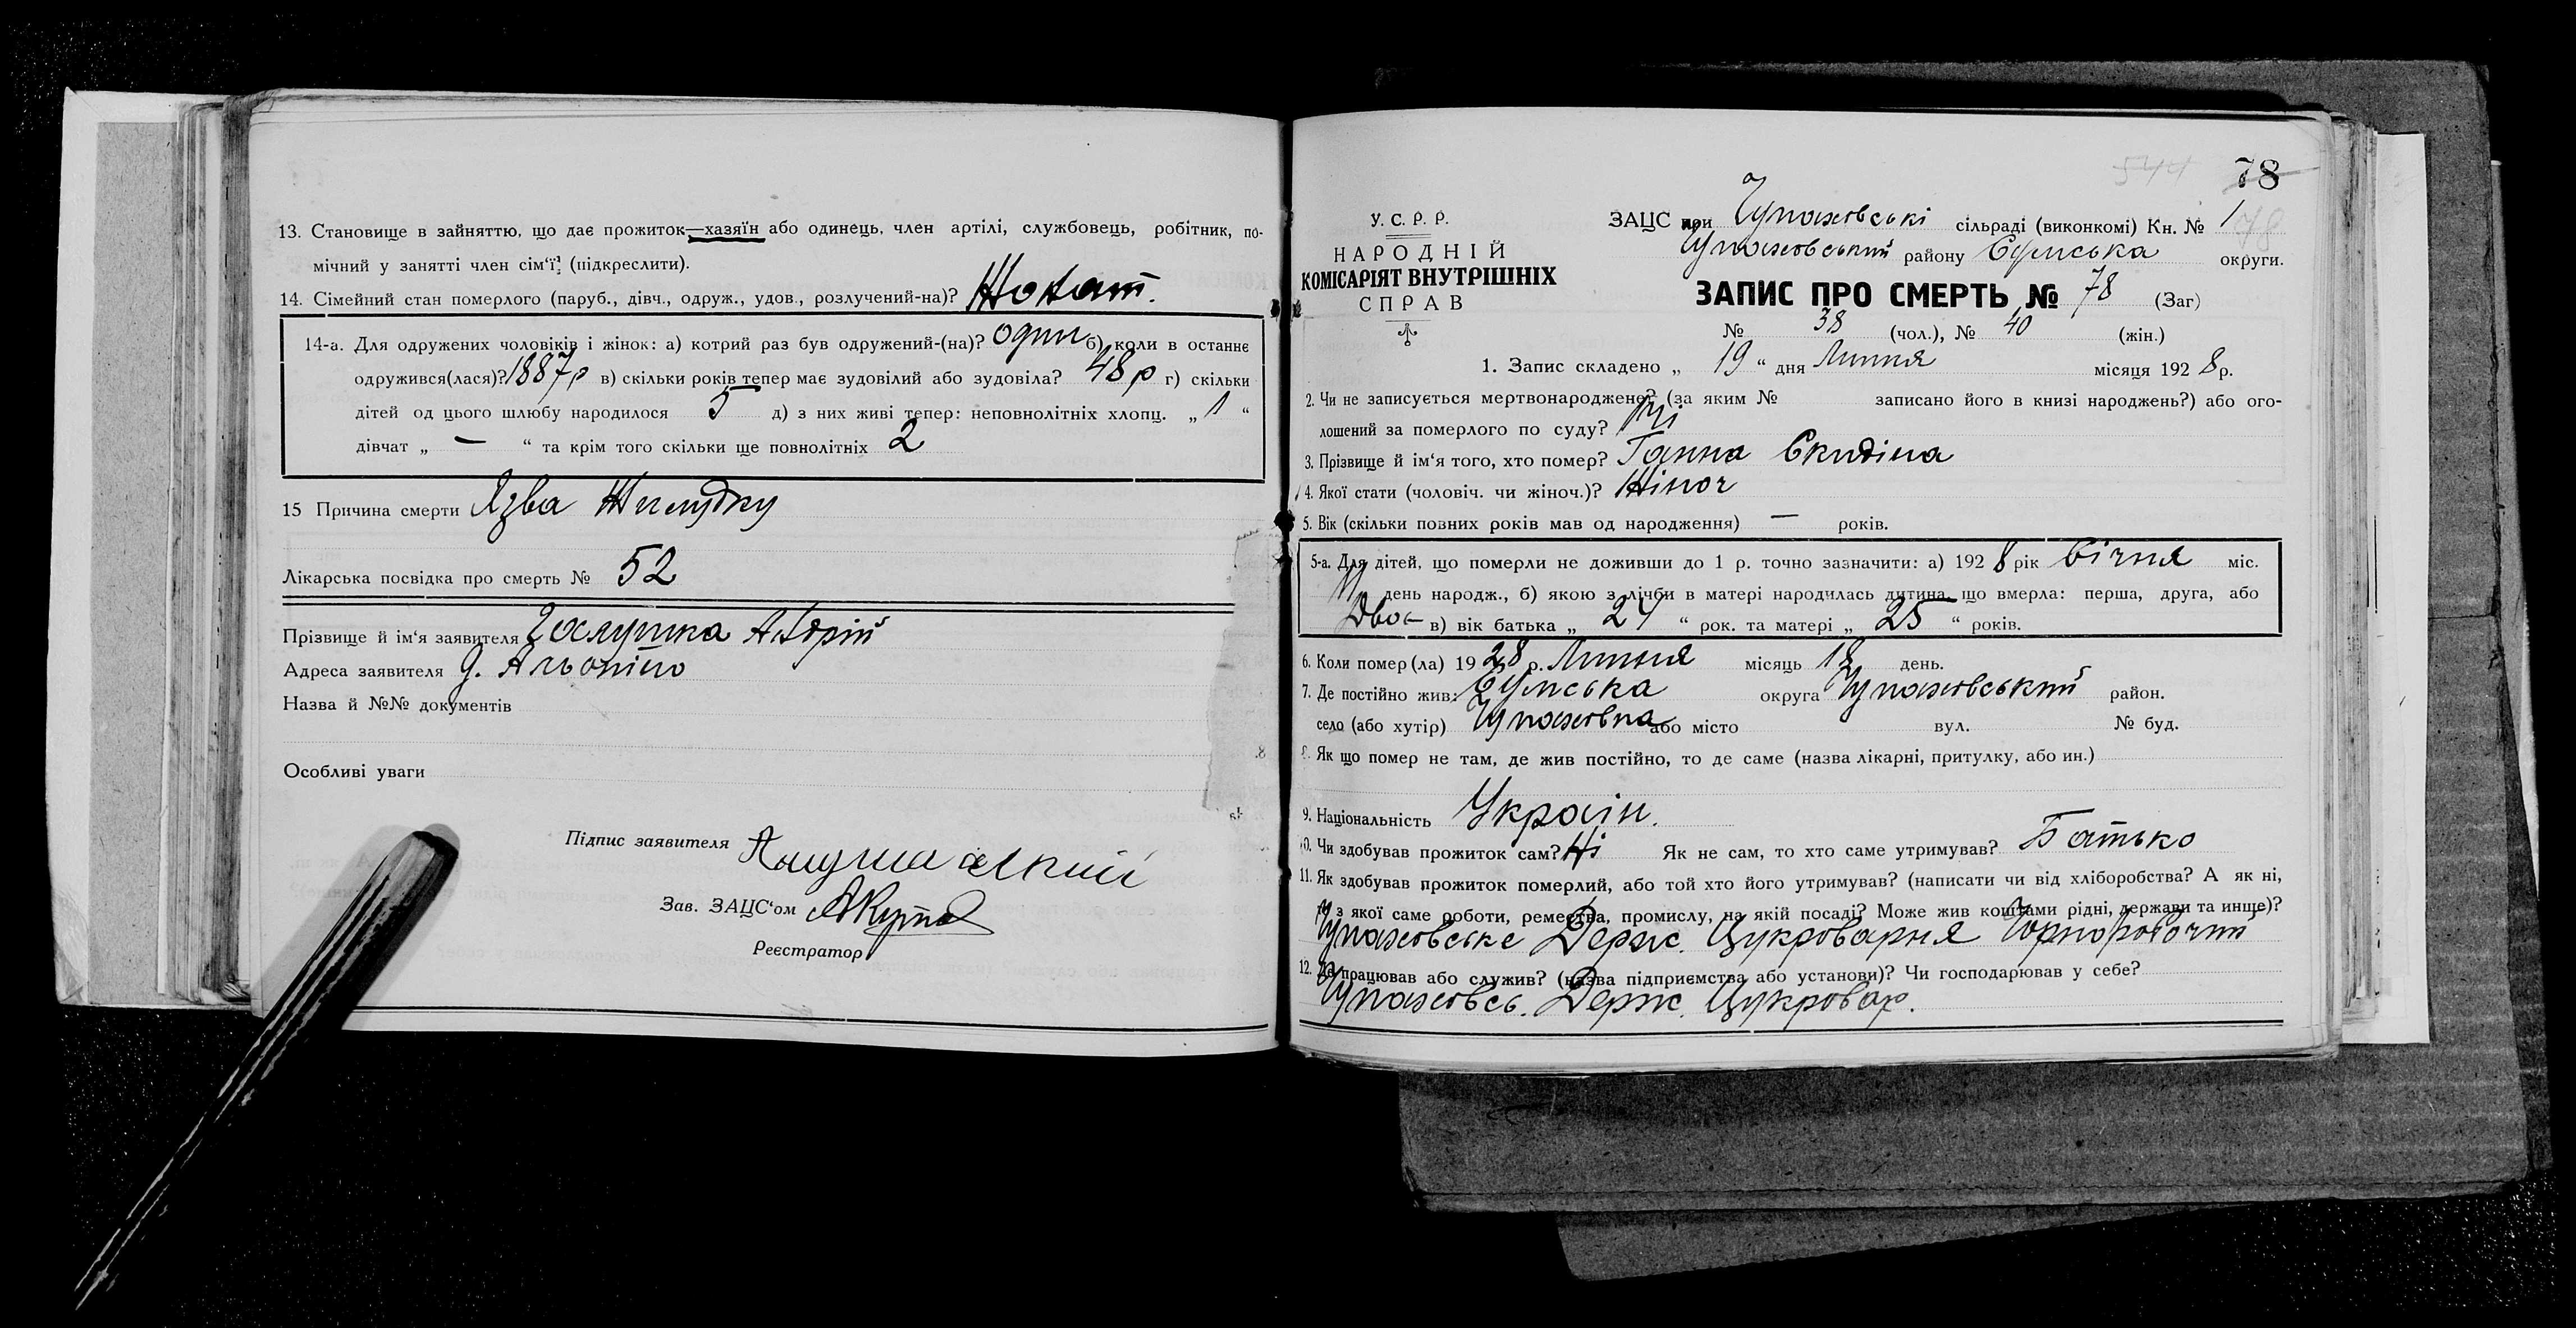 13. Становище в зайняттю, що дає прожиток—хазяїн або одинець, член артілі, службовець, робітник, по-
мічний у занятті член сім'ї? (підкреслити).
14. Сімейний стан померлого (паруб., дівч., одруж., удов., розлучений-на)? Жонат.
14-а. Для одружених чоловіків і жінок: а) котрий раз був одружений-(на)? один б) коли в останнє
одружився(лася)? 1887 р в) скільки років тепер має зудовілий або зудовіла? 48 р г) скільки
дітей од цього шлюбу народилося 5 д) з них живі тепер: неповнолітніх хлопц. „ 1 “
дівчат „ — “ та крім того скільки ще повнолітніх 2
15 Причина смерти Язва Жилудку
Лікарська посвідка про смерть № 52
Прізвище й ім'я заявителя Андрій
Адреса заявителя
Назва й №№ документів
Особливі уваги
Підпис заявителя
Зав. ЗАЦС'ом
Реєстратор
544 78
У. С. Р. Р.
НАРОДНІЙ
КОМІСАРІЯТ ВНУТРІШНІХ
СПРАВ
ЗАЦС при Чупаховські сільраді (виконкомі) Кн. № 1
78
Чупаховський району Сумська округи.
ЗАПИС ПРО СМЕРТЬ № 78 (Заг)
№ 38 (чол.), № 40 (жін.)
1. Запис складено „ 19 “ дня Липня місяця 1928 р.
2. Чи не записується мертвонароджене? (за яким № записано його в книзі народжень?) або ого-
лошений за померлого по суду? Ні
3. Прізвище й ім'я того, хто помер? Ганна Скидіна
4. Якої стати (чоловіч. чи жіноч.)? Жіноч
5. Вік (скільки повних років мав од народження) — років.
5-а. Для дітей, що померли не доживши до 1 р. точно зазначити: а) 1928 рік Січня міс.
день народж., б) якою з лічби в матері народилась дитина, що вмерла: перша, друга, або
Двоє в) вік батька „ 24 “ рок. та матері „ 25 “ років.
6. Коли помер(ла) 1928 р. Липня місяць 18 день.
7. Де постійно жив: Сумська округа Чупаховський район.
село (або хутір) Чупаховка або місто вул. № буд.
8. Як що помер не там, де жив постійно, то де саме (назва лікарні, притулку, або ин.)
9. Національність Україн.
10. Чи здобував прожиток сам? Ні Як не сам, то хто саме утримував? Батько
11. Як здобував прожиток померлий, або той хто його утримував? (написати чи від хліборобства? А як ні,
то з якої саме роботи, ремества, промислу, на якій посаді? Може жив коштами рідні, держави та инще)?
Чупаховське Держ. Цукроварня Чорноробочий
12. Де працював або служив? (назва підприємства або установи)? Чи господарював у себе?
Чупаховсь. Держ. Цукровар.